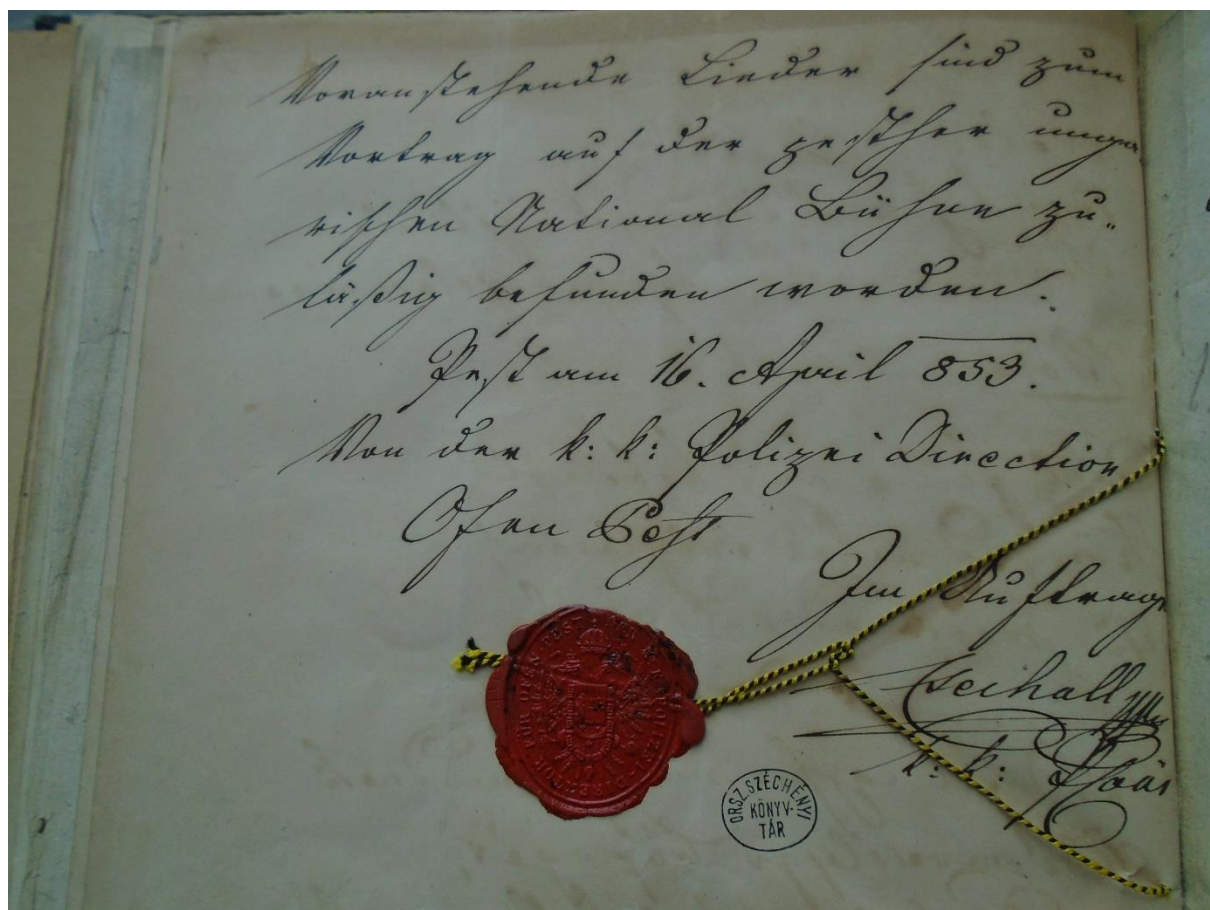 Voranstehende Lieder sind zum
Vortrag auf der pesther unga
rischen National Bühne zu„
läßig befunden worden.
Pest am 16. April 853.
Von der k: k: Polizei Direction
Ofen Pest
Im Auftrage
k: k:
ORSZ. SZÉCHÉNYI
KÖNYV-
TÁR